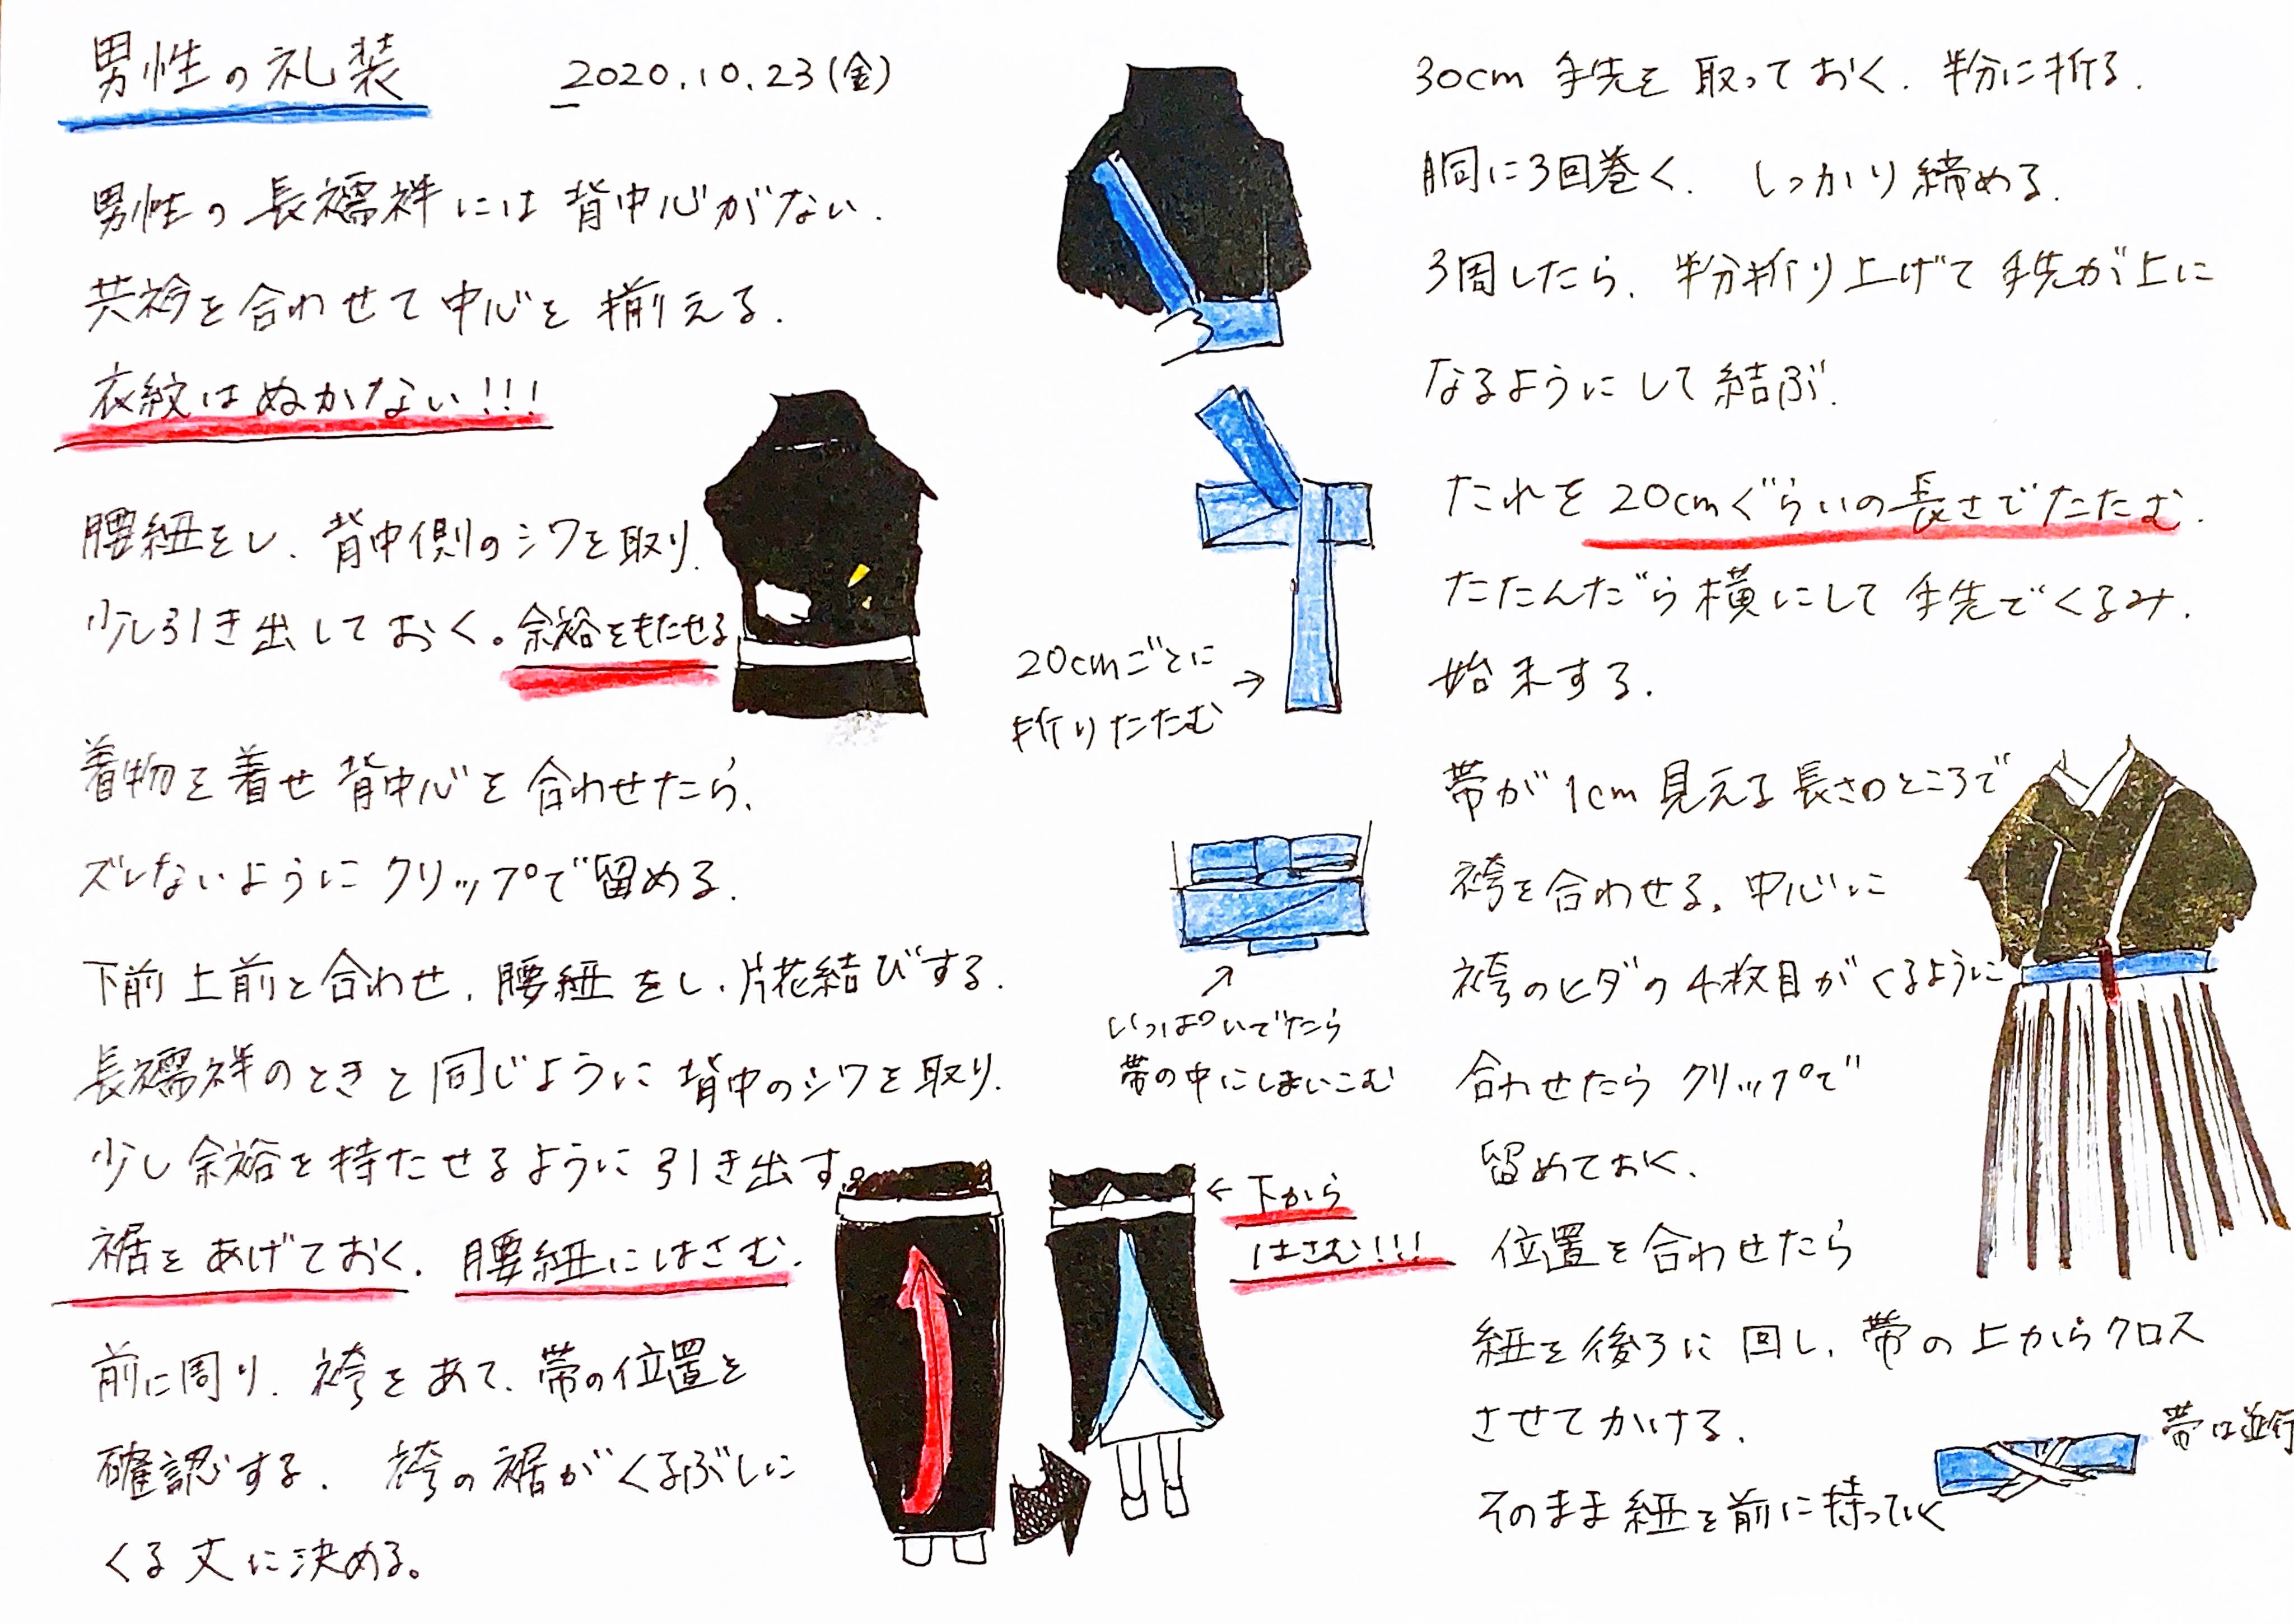 男性の礼装
2020.10.23(金)
男性の長襦袢には背中心がない.
共衿を合わせて中心を揃える.
衣紋はぬかない!!!
腰紐をし、背中側のシワを取り.
少し引き出しておく。余裕をもたせる
着物を着せ背中心を合わせたら、
ズレないようにクリップで留める.
下前上前と合わせ、腰紐をし、片花結びする.
長襦袢のときと同じように背中のシワを取り.
少し余裕を持たせるように引き出す。
裾をあげておく. 腰紐にはさむ.
前に周り、袴をあて、帯の位置を
確認する. 袴の裾がくるぶしに
くる丈に決める。
20cmごとに
折りたたむ
→
↗
いっぱいでたら
帯の中にしまいこむ
← 下から
はさむ!!!
30cm 手先を取っておく. 半分に折る.
胴に3回巻く. しっかり締める.
3周したら、半分折り上げて手先が上に
なるようにして結ぶ.
たれを20cmぐらいの長さでたたむ.
たたんだら横にして手先でくるみ.
始末する.
帯が1cm見える長さのところで
袴を合わせる。中心に
袴のヒダの4枚目がくるように
合わせたらクリップで
留めておく.
位置を合わせたら
紐を後ろに回し、帯の上からクロス
させてかける.
帯は並行
そのまま紐を前に持っていく